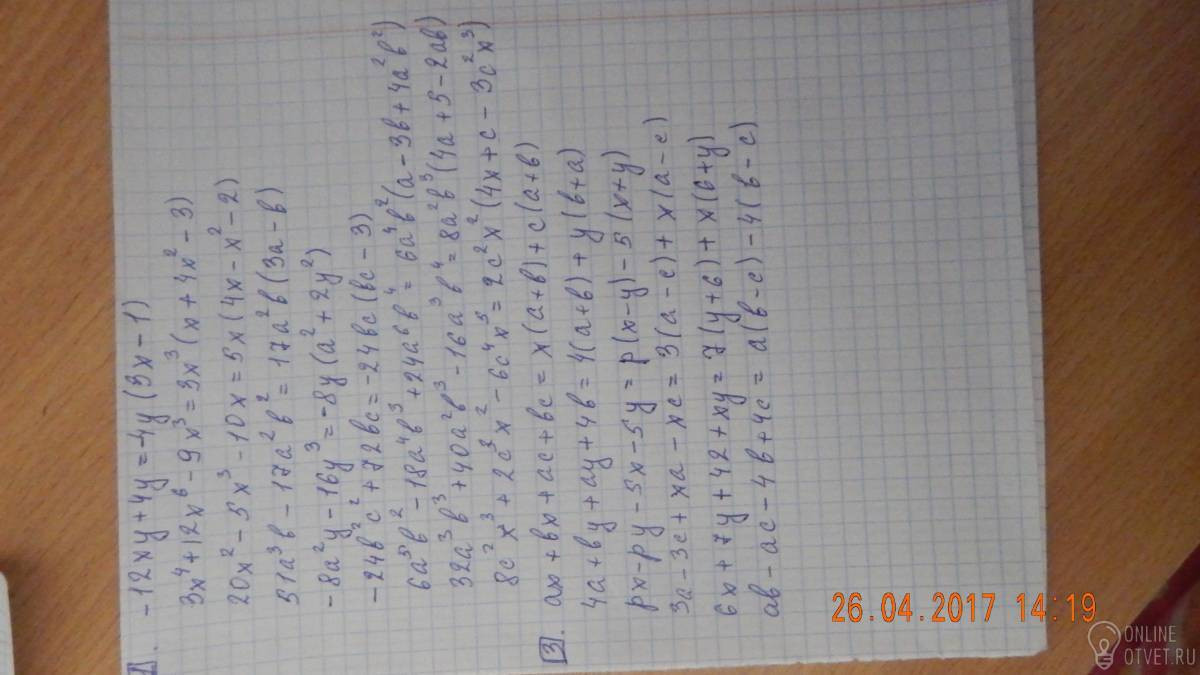 1. -12xy+4y=-4y(3x-1)
3x⁴+12x⁶-9x³=3x³(x+4x²-3)
20x²-5x³-10x=5x(4x-x²-2)
51a³b-17a²b²=17a²b(3a-b)
-8a²y-16y³=-8y(a²+2y²)
-24b²c²+72bc=-24bc(bc-3)
6a⁵b²-18a⁴b³+24a6b⁴=6a⁴b²(a-3b+4a²b²)
32a³b³+40a²b³-16a³b⁴=8a²b³(4a+5-2ab)
8c²x³+2c³x²-6c⁴x³=2c²x²(4x+c-3c²x³)
3. ax+bx+ac+bc=x(a+b)+c(a+b)
4a+by+ay+4b=4(a+b)+y(b+a)
px-py-5x-5y=p(x-y)-5(x+y)
3a-3c+xa-xc=3(a-c)+x(a-c)
6x+7y+42+xy=7(y+6)+x(6+y)
ab-ac-4b+4c=a(b-c)-4(b-c)
26.04.2017 14:19
ONLINE
OTVET.RU